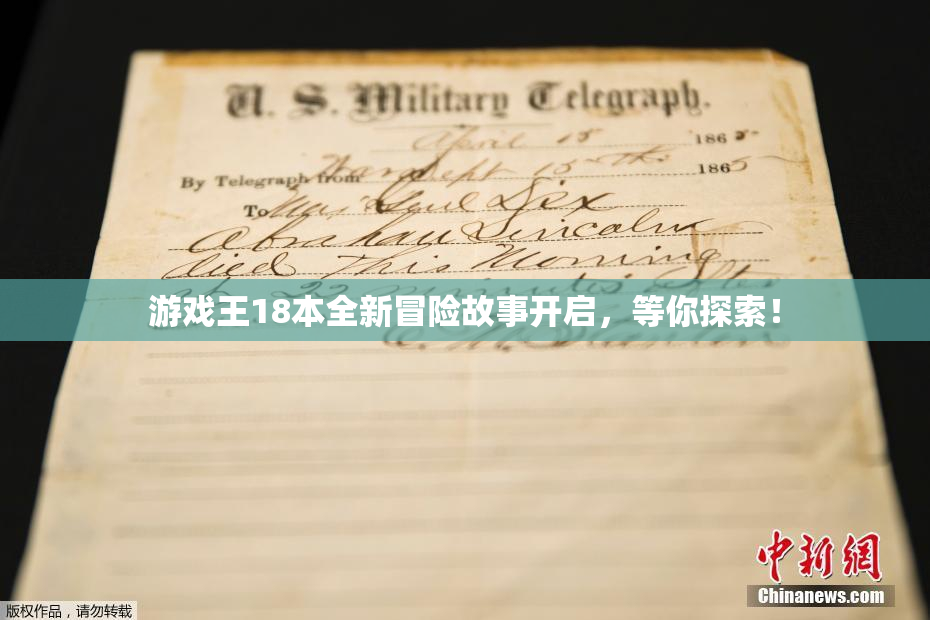 U. S. Military Telegraph.
April 15 1865
By Telegraph from War Dept 15th 1865
To Maj Genl Dix
Abraham Lincoln
died This Morning
at 22 minutes after
游戏王18本全新冒险故事开启，等你探索！
E. M. Stanton
中新网
Chinanews.com
版权作品，请勿转载